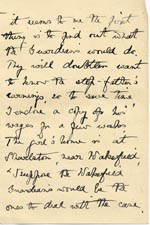 it seems to me the first
thing is to find out what
the Guardians would do.
They will doubtless want
to know the step-father's
earnings so to save time
I enclose a copy of his
wages for a few weeks
The girl's home is at
Sharlston near Wakefield
& I suppose the Wakefield
Guardians would be the
ones to deal with the case.